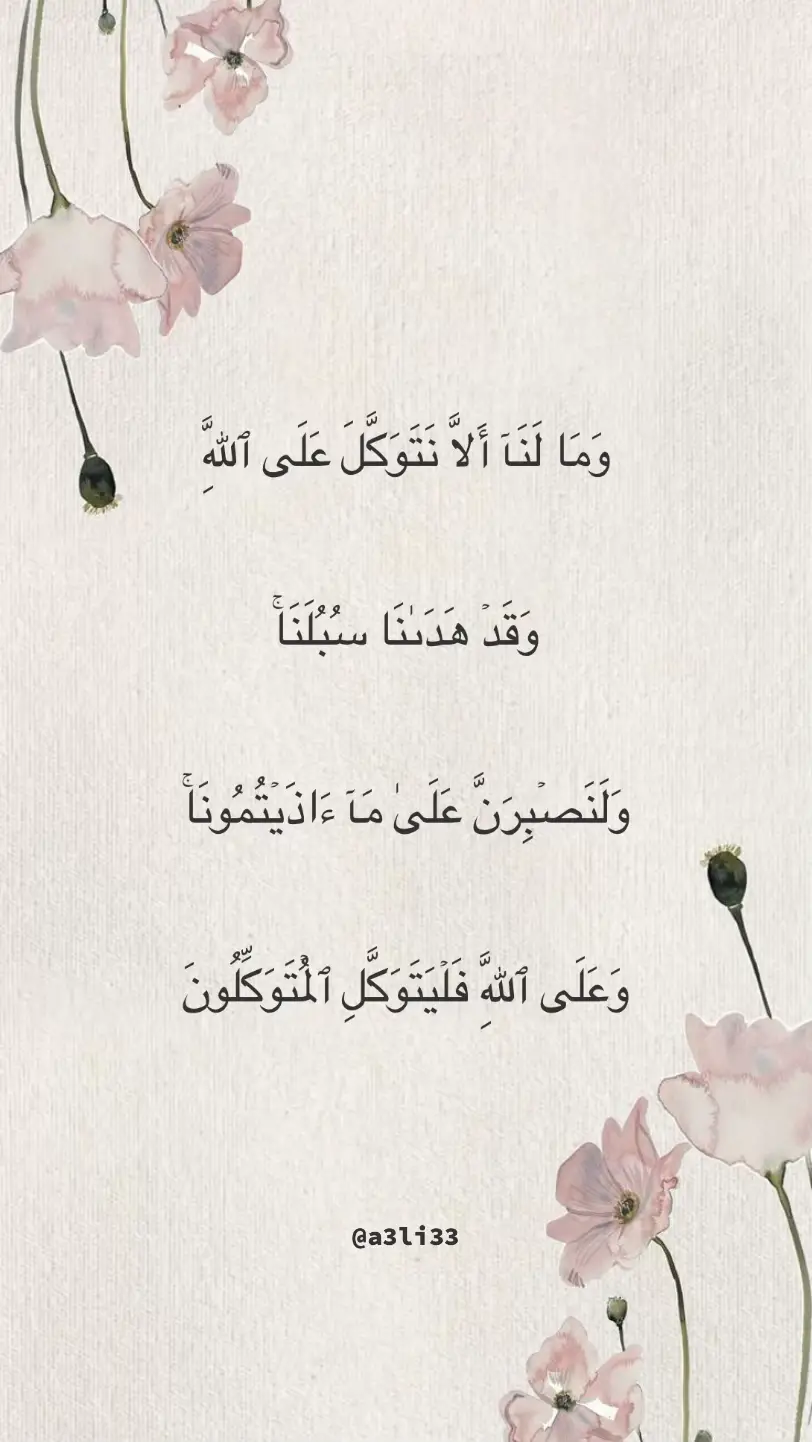 وَمَا لَنَآ أَلاَّ نَتَوَكَّلَ عَلَى ٱللهَِّ
وَقَدۡ هَدَىٰنَا سُبُلَنَاۚ
وَلَنَصۡبِرَنَّ عَلَىٰ مَآ ءَاذَيۡتُمُونَاۚ
وَعَلَى ٱللهَِّ فَلۡيَتَوَكَّلِ ٱلۡمُتَوَكِّلُونَ
@a3li33